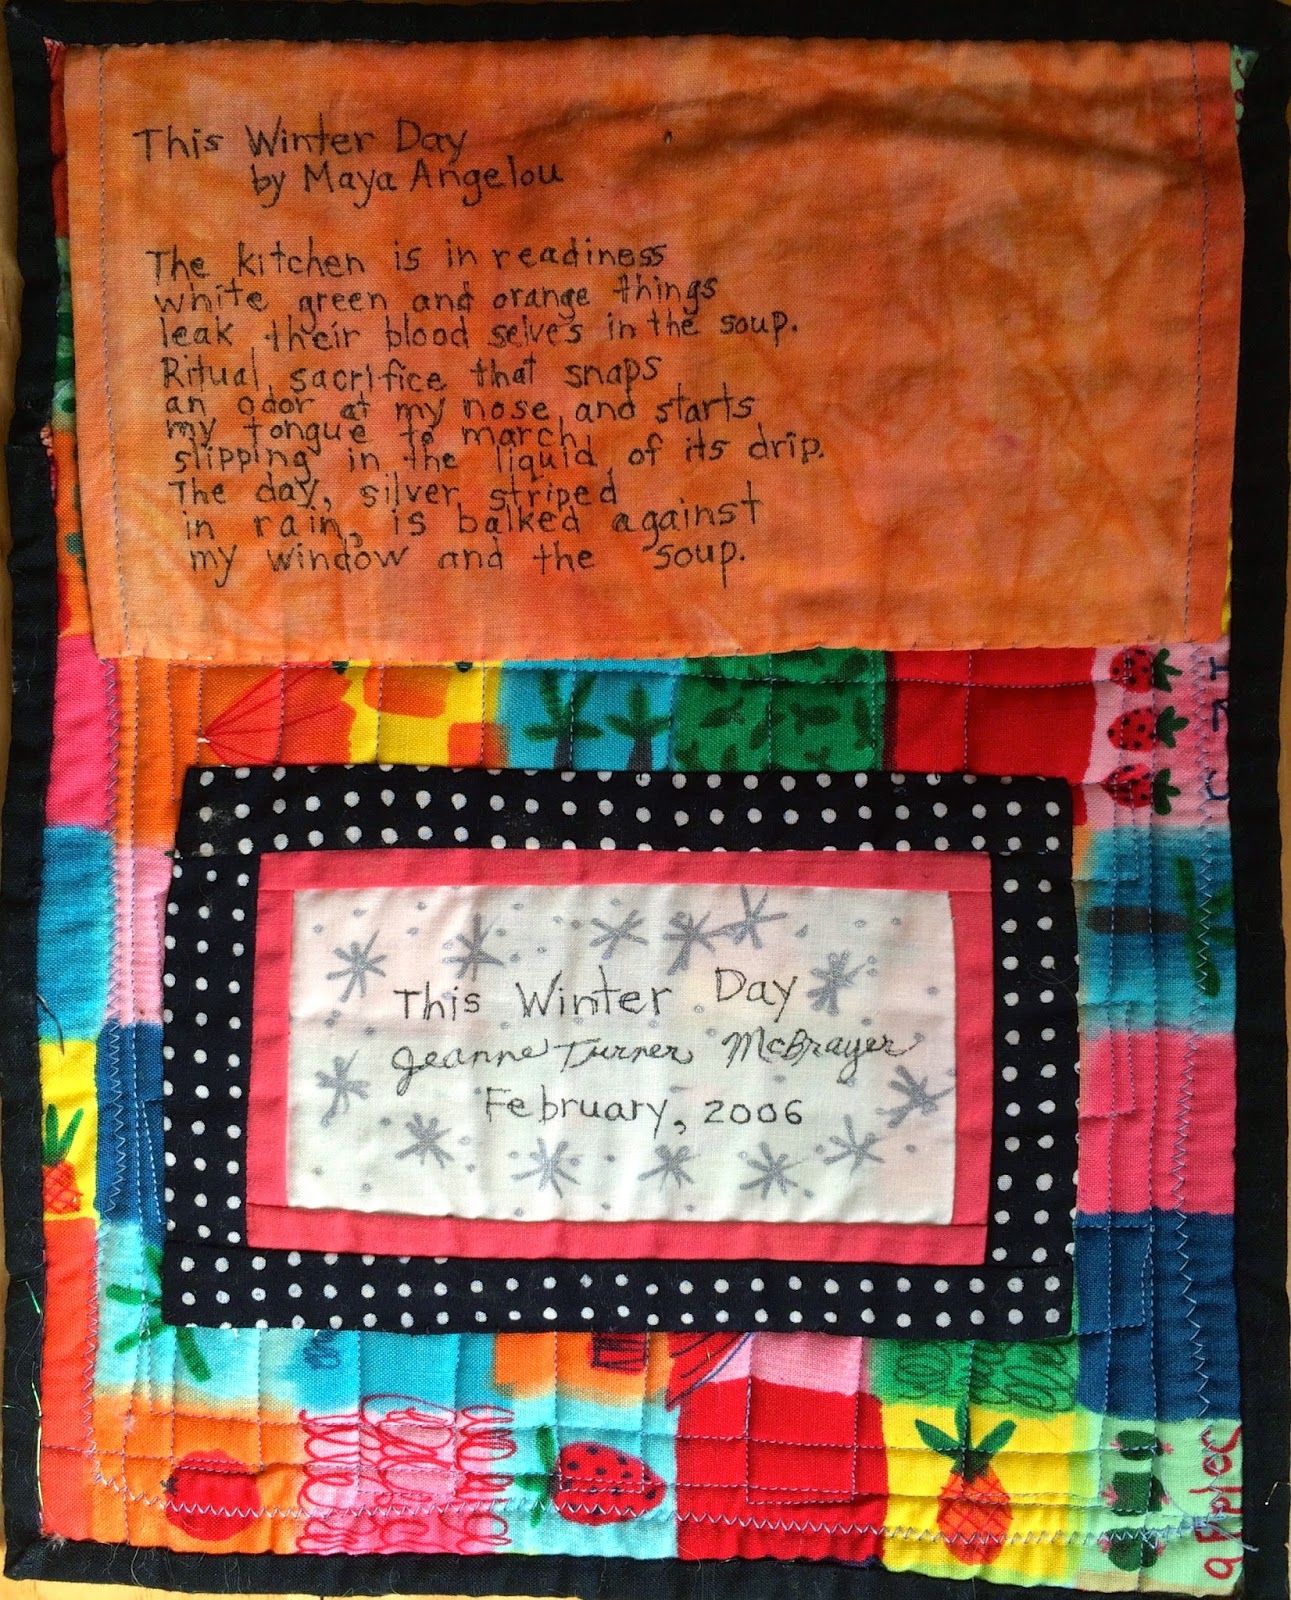 This Winter Day
by Maya Angelou
The kitchen is in readiness
white green and orange things
leak their blood selves in the soup.
Ritual sacrifice that snaps
an odor at my nose and starts
my tongue to march
slipping in the liquid of its drip.
The day, silver striped
in rain, is balked against
my window and the soup.
This Winter Day
Jeanne Turner McBrayer
February, 2006